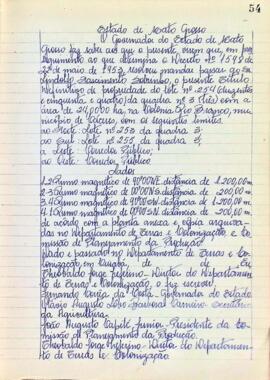 54
Estado de Mato Grosso
O Governador do Estado de Mato
Grosso faz saber aos que o presente virem que, em
ao que determina o Decreto nº 1598 de
22 de maio de 1953, resolveu mandar passar ao Sr.
Sacramento o presente Título
Definitivo de propriedade do lote nº 254 (duzentos
e cinquenta e quatro) da quadra nº 3 (três) com a
área de 24,0000 ha, na Colônia Rio Branco, mu-
nicípio de Cáceres, com os seguintes limites:
ao Norte: Lote nº 253 da quadra 3;
ao Sul: Lote nº 255 da quadra 3;
a Leste: Corredor Público;
ao Oeste: Corredor Público
Lados
1.2 Rumo magnético de 90º00'NE distância de 1.200,00 m.
2.3 Rumo magnético de 00º00'S distância de 200,00 m.
3.4 Rumo magnético de 90º00' distância de 1.200,00 m.
4.1 Rumo magnético de 00º00'N distância de 200,00 m.
de acôrdo com a planta anexa e cópia arquiva-
das no Departamento de Terras e Colonização e Co-
missão de Planejamento da Produção.
Dado e passado no Departamento de Terras e Co-
lonização, em Cuiabá,
Theobaldo Jorge Diretor do Departamen-
to de Terras e Colonização, o fiz escrever.
Fernando Corrêa da Costa - Governador do Estado
Secretário
da Agricultura
João Augusto Capilé Junior - Presidente da Co-
missão de Planejamento da Produção
Theobaldo Jorge Diretor do Departamen-
to de Terras e Colonização.